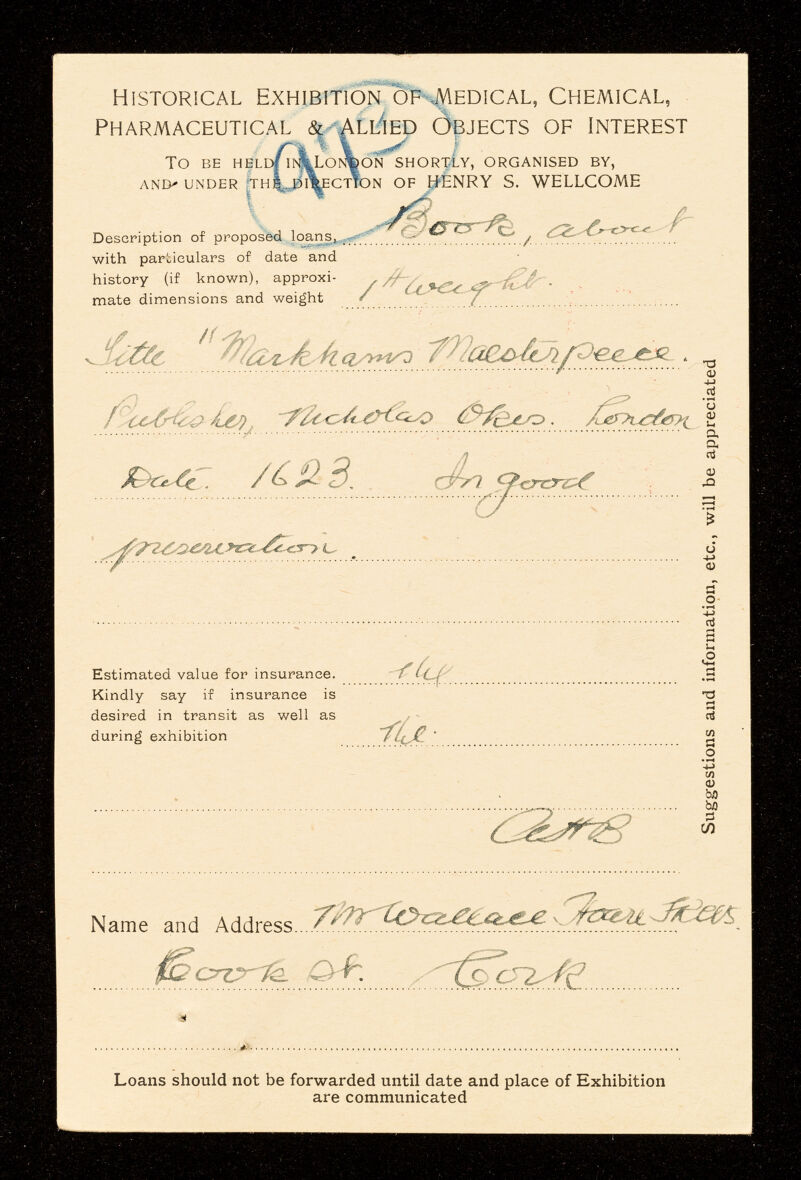 HISTORICAL EXHIBITION OF MEDICAL, CHEMICAL,
PHARMACEUTICAL & ALLIED OBJECTS OF INTEREST
TO BE HELD IN LONDON SHORTLY, ORGANISED BY,
AND UNDER THE DIRECTION OF HENRY S. WELLCOME
Description of proposed loans, Book, about
with particulars of date and
history (if known), approxi-
mate dimensions and weight 1 weight.
Title "Markhams Maesterpeece.
Publisher, Nicholas Okes. London
Date. 1623. In good
preservation.
Estimated value for insurance.
Kindly say if insurance is
desired in transit as well as
during exhibition
Name and Address Mr Wallace
Cook St. Cork
Loans should not be forwarded until date and place of Exhibition
are communicated
Suggestions and information, etc., will be appreciated